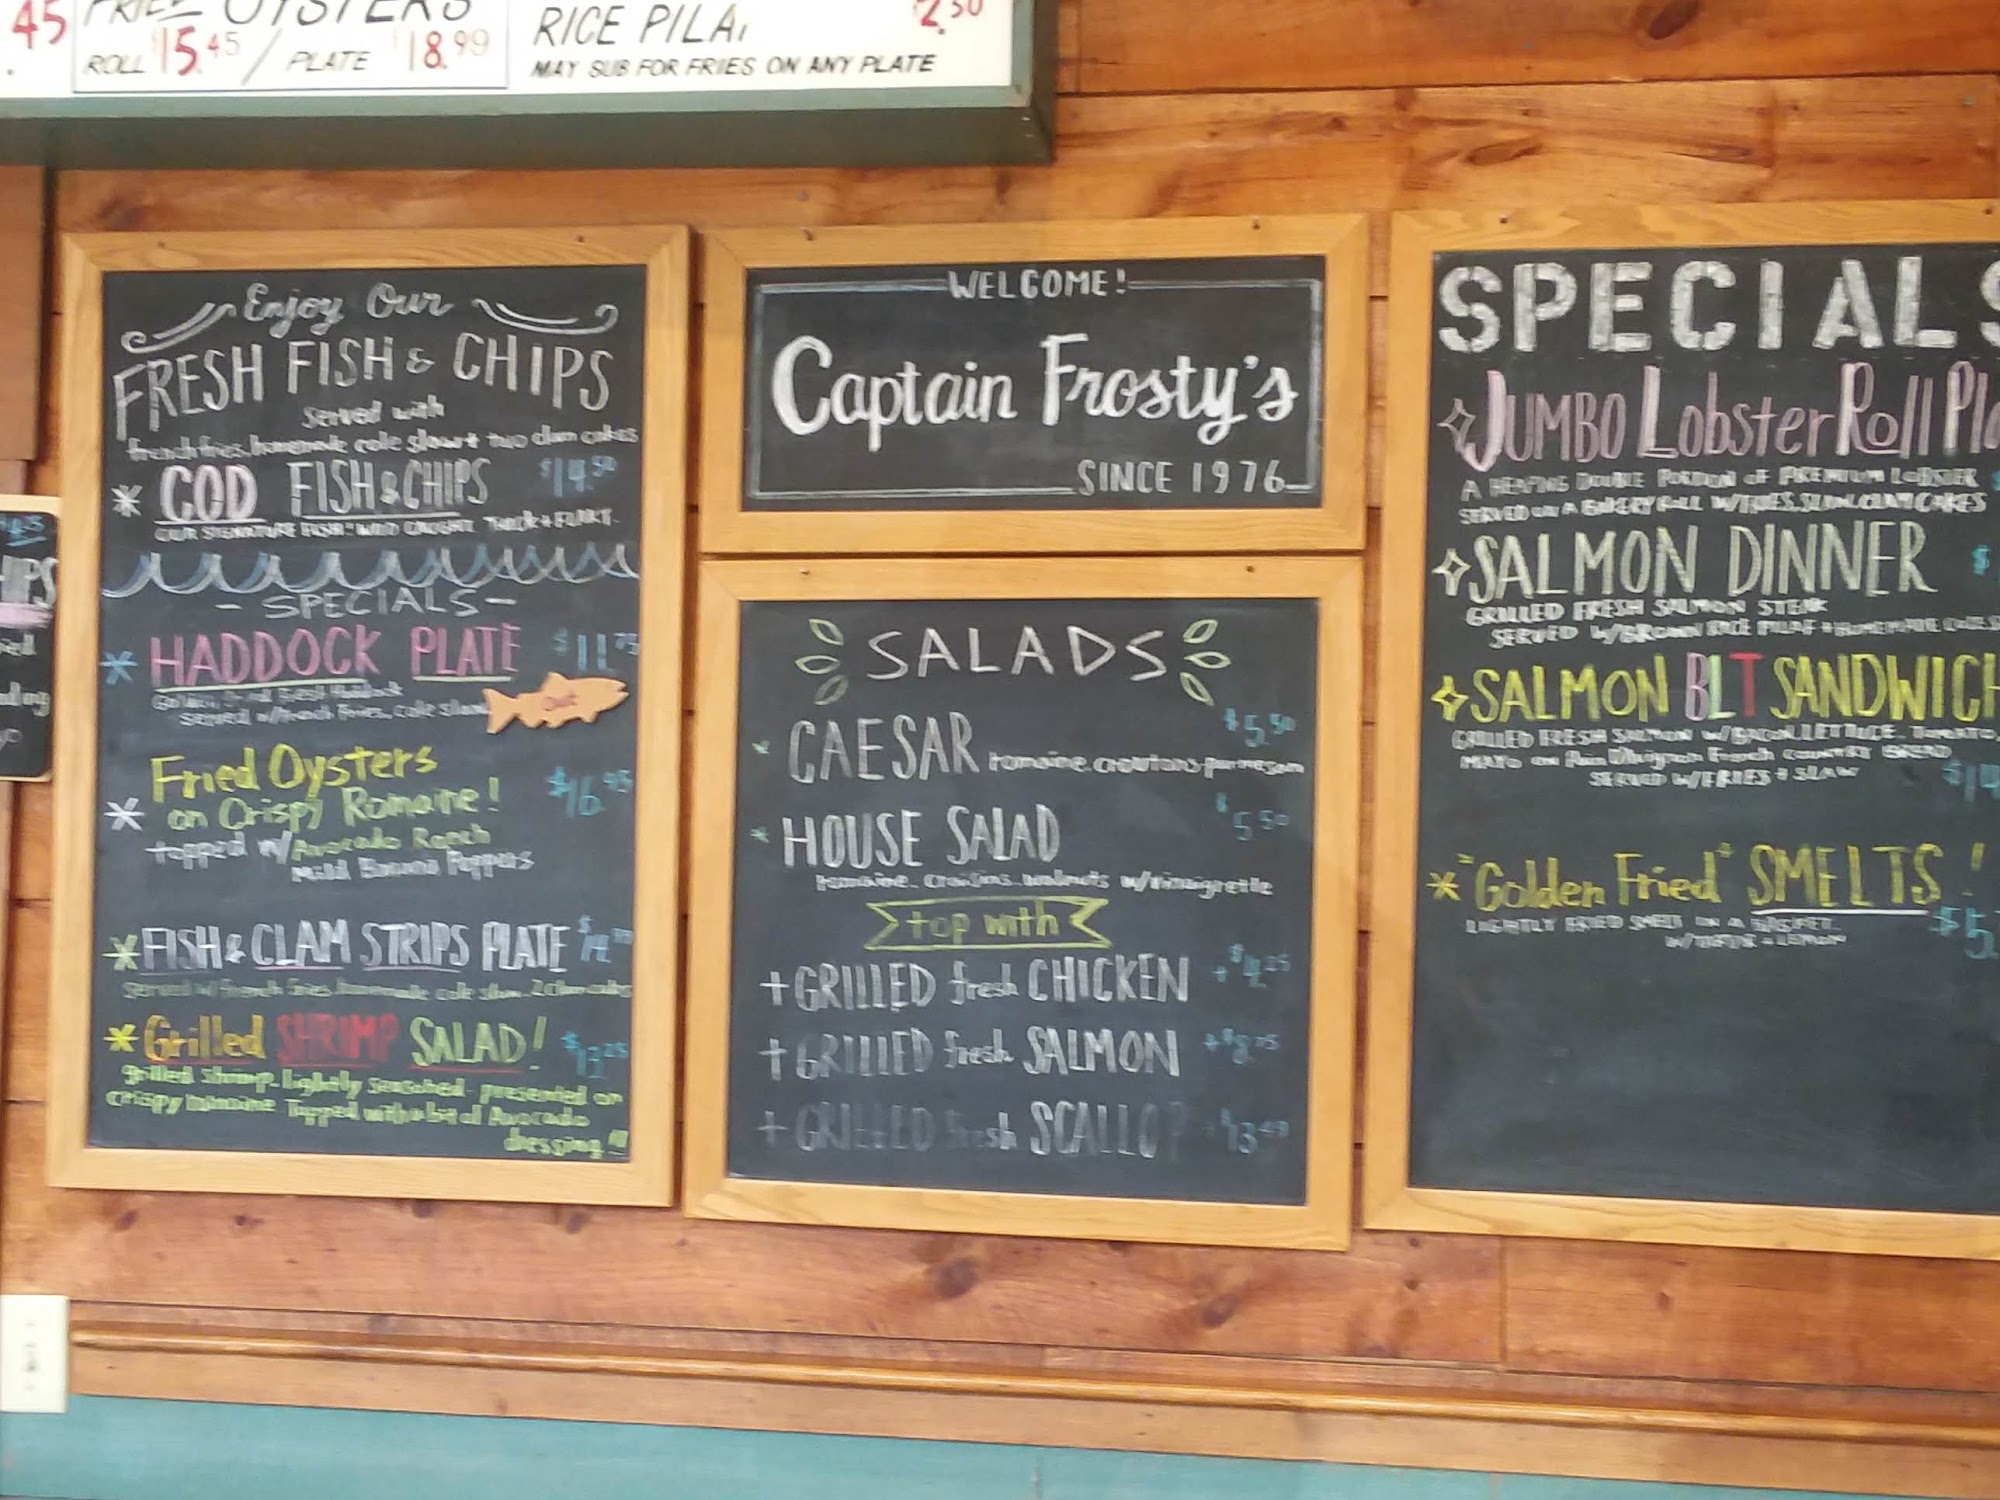 45
FRIED OYSTERS
ROLL $15.45 / PLATE $18.99
RICE PILA
$2.50
MAY SUB FOR FRIES ON ANY PLATE
Enjoy Our
FRESH FISH & CHIPS
served with
french fries, homemade cole slaw + two clam cakes
* COD FISH & CHIPS $14.50
OUR SIGNATURE FISH. WILD CAUGHT. THICK + FLAKY.
- SPECIALS -
* HADDOCK PLATE $11.75
fresh Haddock
served w/ french fries, cole slaw
Out
Fried Oysters
* on Crispy Romaine! $16.95
topped w/ Avocado Ranch
Mild Banana Peppers
* FISH & CLAM STRIPS PLATE
Served w/ french fries, homemade cole slaw, 2 clam cakes
* Grilled SHRIMP SALAD! $12.25
grilled shrimp. lightly seasoned. presented on
crispy romaine Topped with a bit of Avocado
dressing!!!
WELCOME!
Captain Frosty's
SINCE 1976
SALADS
* CAESAR romaine. croutons. parmesan $5.50
* HOUSE SALAD $5.50
romaine. craisins. walnuts w/vinaigrette
top with
+ GRILLED fresh CHICKEN +$4.25
+ GRILLED fresh SALMON +$8.25
+ GRILLED fresh SCALLOP +$13.49
SPECIALS
JUMBO Lobster Roll Pla
A HEAPING DOUBLE PORTION OF PREMIUM LOBSTER
SERVED ON A BAKERY ROLL W/FRIES, SLAW, CLAM CAKES
SALMON DINNER $
GRILLED FRESH SALMON STEAK
SERVED W/BROWN RICE PILAF + HOMEMADE COLE S
SALMON BLT SANDWICH
GRILLED FRESH SALMON W/BACON, LETTUCE, TOMATO,
MAYO on Pain D'Avignon French COUNTRY BREAD
SERVED W/FRIES + SLAW $14
* "Golden Fried" SMELTS!
LIGHTLY FRIED SMELT IN A BASKET. $5.
W/TARTAR + LEMON